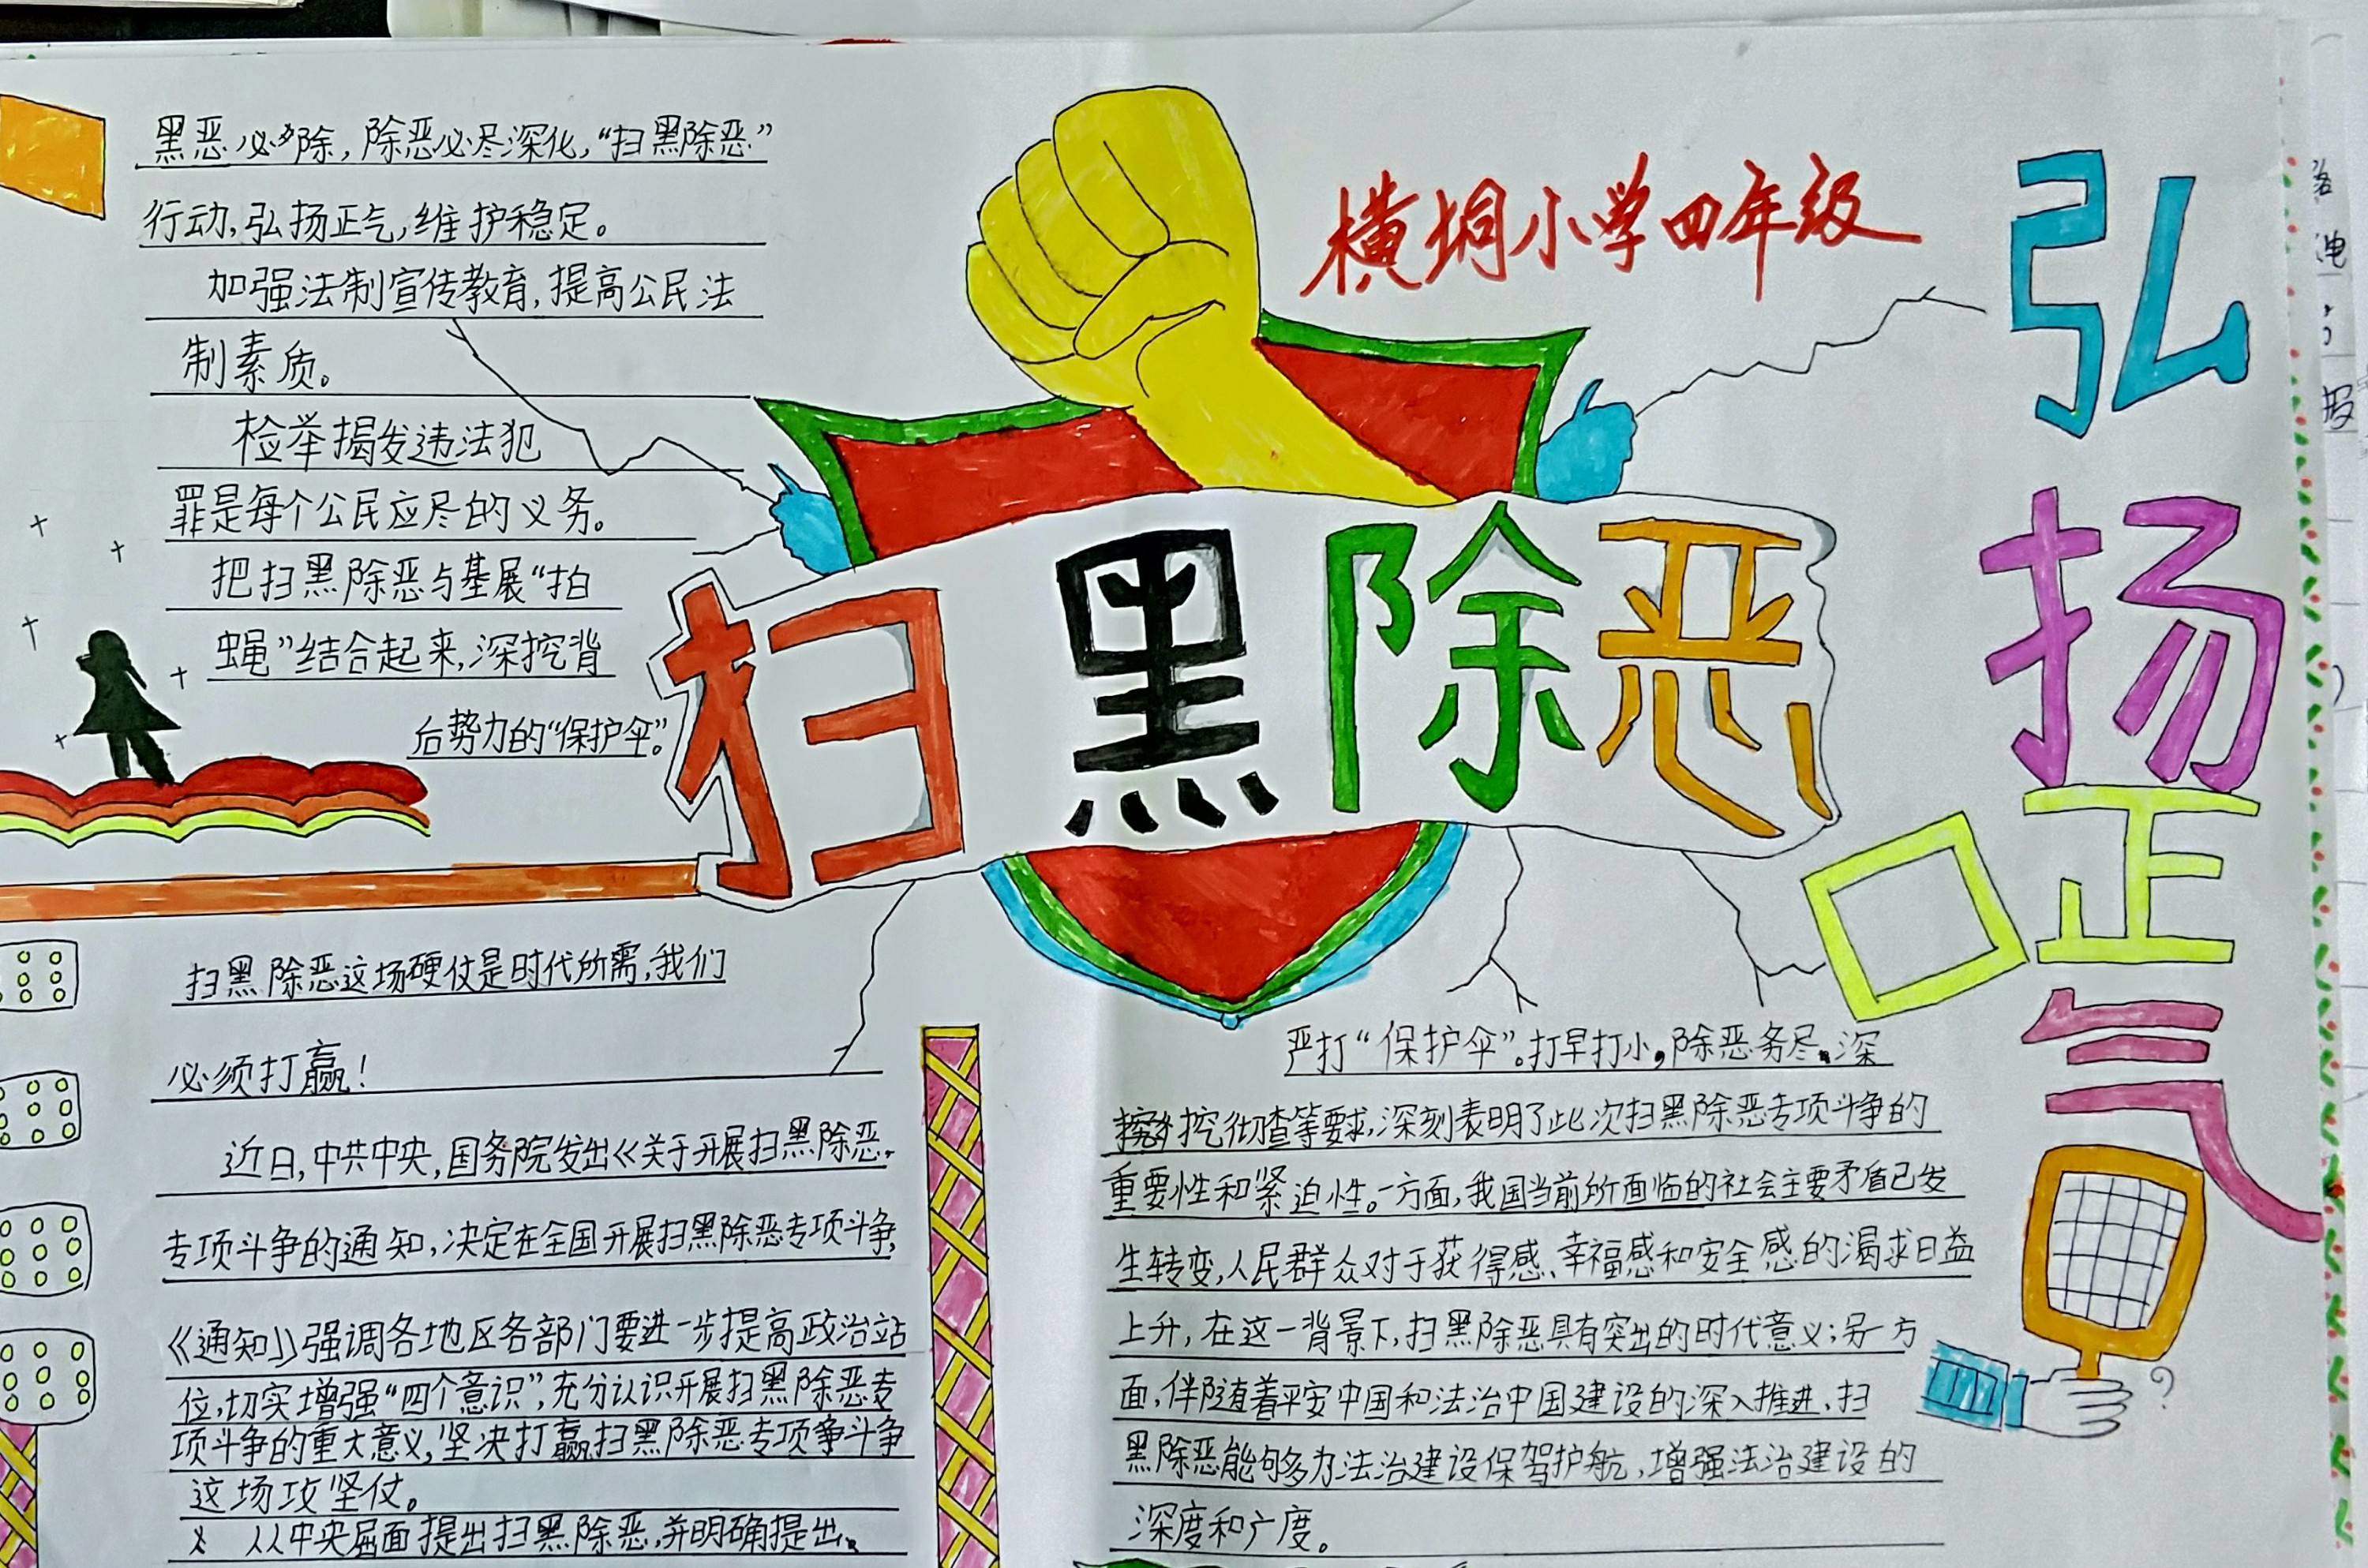 黑恶必除,除恶必尽深化,“扫黑除恶”
行动,弘扬正气,维护稳定。
加强法制宣传教育,提高公民法
制素质。
检举揭发违法犯
罪是每个公民应尽的义务。
把扫黑除恶与基展“拍
蝇”结合起来,深挖背
后势力的“保护伞”。
横垌小学四年级
扫黑除恶
弘扬正气
扫黑除恶这场硬仗是时代所需,我们
必须打赢!
近日,中共中央,国务院发出《关于开展扫黑除恶
专项斗争的通知,决定在全国开展扫黑除恶专项斗争,
《通知》强调各地区各部门要进一步提高政治站
位,切实增强“四个意识”,充分认识开展扫黑除恶专
项斗争的重大意义,坚决打赢扫黑除恶专项争斗争
这场攻坚仗。
从中央层面提出扫黑除恶,并明确提出、
严打“保护伞”。打早打小,除恶务尽、深
挖彻查等要求,深刻表明了此次扫黑除恶专项斗争的
重要性和紧迫性。一方面,我国当前所面临的社会主要矛盾已发
生转变,人民群众对于获得感、幸福感和安全感的渴求日益
上升,在这一背景下,扫黑除恶具有突出的时代意义;另一方
面,伴随着平安中国和法治中国建设的深入推进,扫
黑除恶能够为法治建设保驾护航,增强法治建设的
深度和广度。